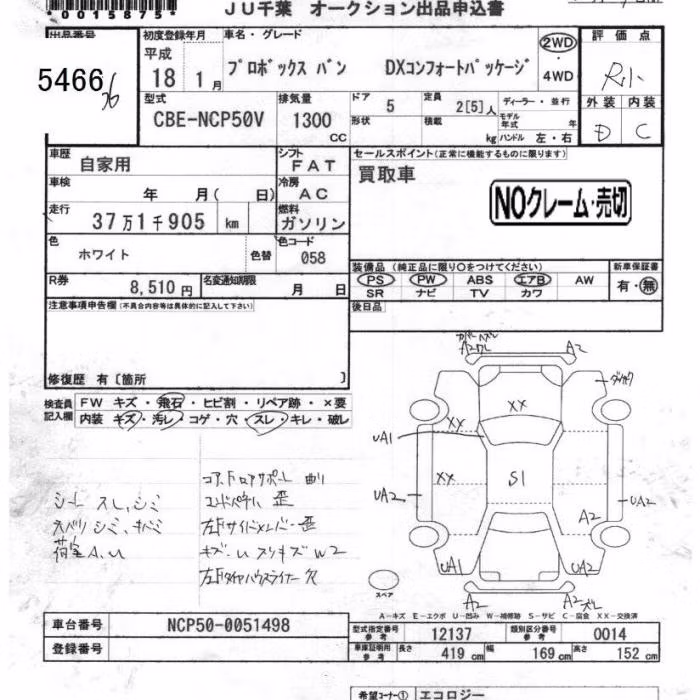 0015875
JU千葉 オークション出品申込書
出品番号
5466
初度登録年月
平成
18 1 月
車名・グレード
プロボックス バン DXコンフォートパッケージ
2WD
4WD
評価点
R小
外装 内装
D C
型式
CBE-NCP50V
排気量
1300
CC
ドア
5
定員
2[5]人
形状
積載
kg
ディーラー・並行
モデル年式 年
ハンドル 左・右
車歴
自家用
シフト
FAT
セールスポイント(正常に機能するものに限ります)
買取車
NOクレーム・売切
車検
年 月( 日)
冷房
AC
走行
37万1千905 km
燃料
ガソリン
色
ホワイト
色替
色コード
058
R券
8,510円
名変通知期限
月 日
装備品 (純正品に限り○をつけてください)
PS PW ABS エアB AW
SR ナビ TV カワ
新車保証書
有・無
後日品
注意事項申告欄(不具合内容等は具体的に記入して下さい)
修復歴 有〔箇所 〕
検査員記入欄
FW キズ・飛石・ヒビ割・リペア跡・×要
内装 キズ・汚レ・コゲ・穴・スレ・キレ・破レ
シート スレ、シミ
荷室 A、U
コアサポート 曲り
左Fサイドメンバー 歪
キズ U スリキズ W2
左Fタイヤハウスライナー 欠
A2
A2
XX
XX
UA1
XX
S1
UA2
UA2
A2
UA1
UA2
A2
A2 ズレ
スペア
A-キズ E-エクボ U-凹み W-補修跡 S-サビ C-腐食 XX-交換済
車台番号
NCP50-0051498
登録番号
型式指定番号 参考
12137
類別区分番号 参考
0014
車庫証明用 参考
長さ 419 cm
幅 169 cm
高さ 152 cm
希望コーナー① エコロジー